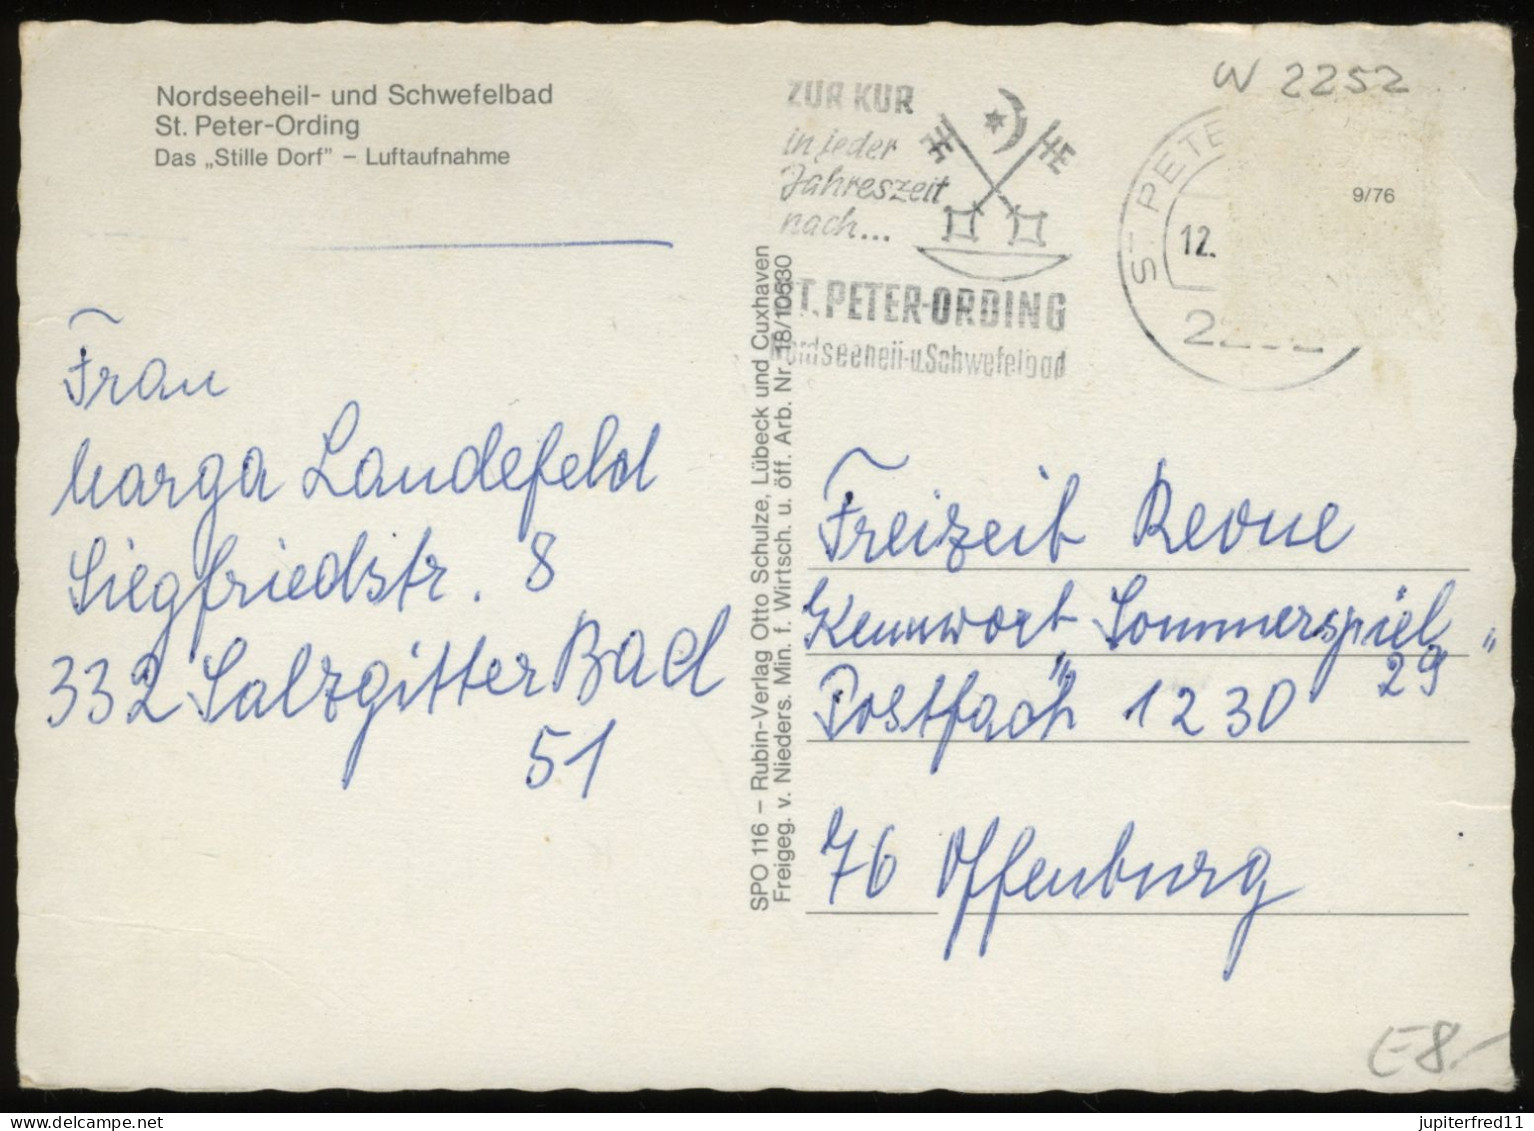 Nordseeheil- und Schwefelbad
St. Peter-Ording
Das „Stille Dorf" – Luftaufnahme
Frau
Marga Landefeld
Siegfriedstr. 8
332 Salzgitter Bad
51
SPO 116 – Rubin-Verlag Otto Schulze, Lübeck und Cuxhaven
Freigeg. v. Nieders. Min. f. Wirtsch. u. öff. Arb. Nr. 18/10630
ZUR KUR
in jeder
Jahreszeit
nach...
ST. PETER-ORDING
Nordseeheil-u.Schwefelbad
W 2252
S-PETE
12.
9/76
Freizeit Revue
Kennwort „Sommerspiel 29"
Postfach 1230
76 Offenburg
E8.-
jupiterfred11